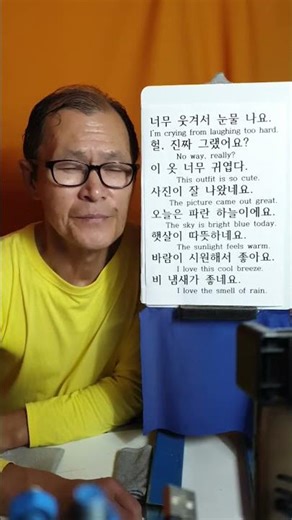 너무 웃겨서 눈물 나요.
I'm crying from laughing too hard.
헐, 진짜 그랬어요?
No way, really?
이 옷 너무 귀엽다.
This outfit is so cute.
사진이 잘 나왔네요.
The picture came out great.
오늘은 파란 하늘이에요.
The sky is bright blue today.
햇살이 따뜻하네요.
The sunlight feels warm.
바람이 시원해서 좋아요.
I love this cool breeze.
비 냄새가 좋네요.
I love the smell of rain.